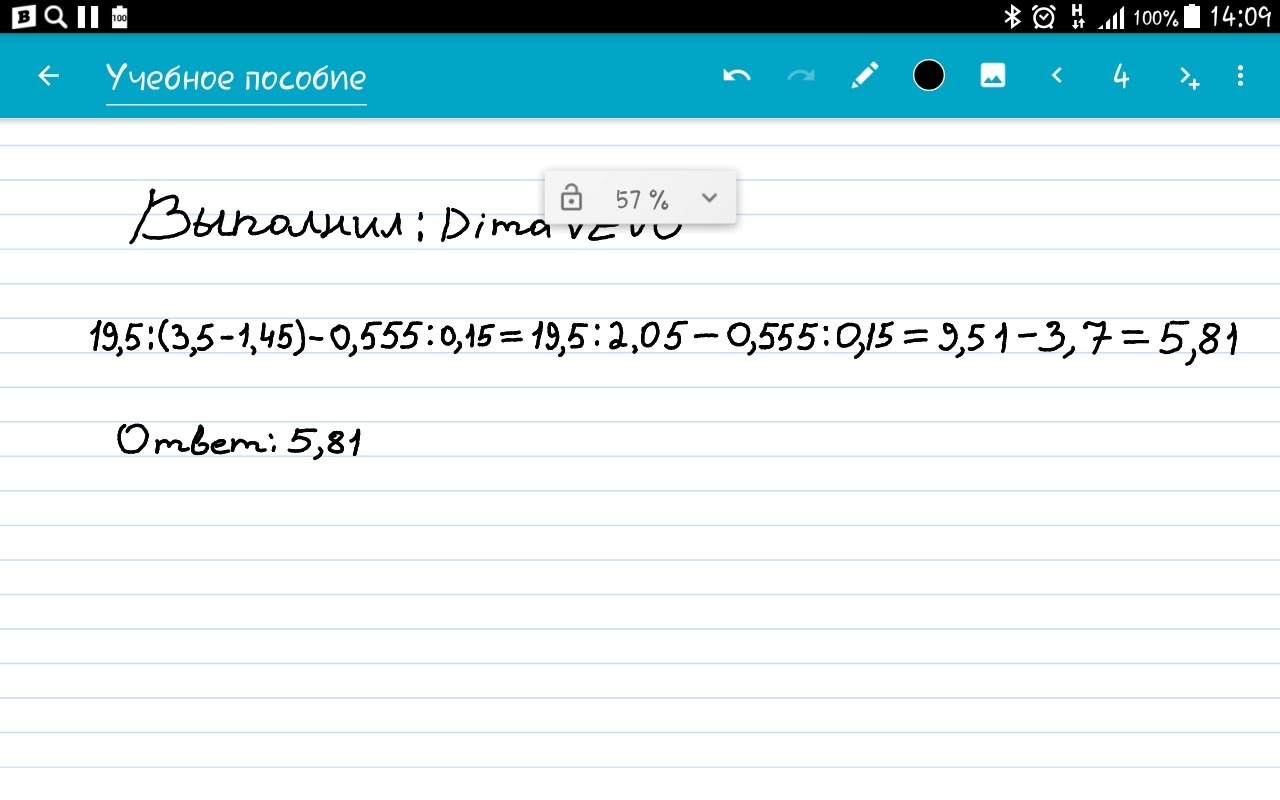 B 100 H 100% 14:09
Учебное пособие 4
57 %
Выполнил: Dima VEVO
19,5:(3,5-1,45)-0,555:0,15=19,5:2,05-0,555:0,15=9,51-3,7=5,81
Ответ: 5,81